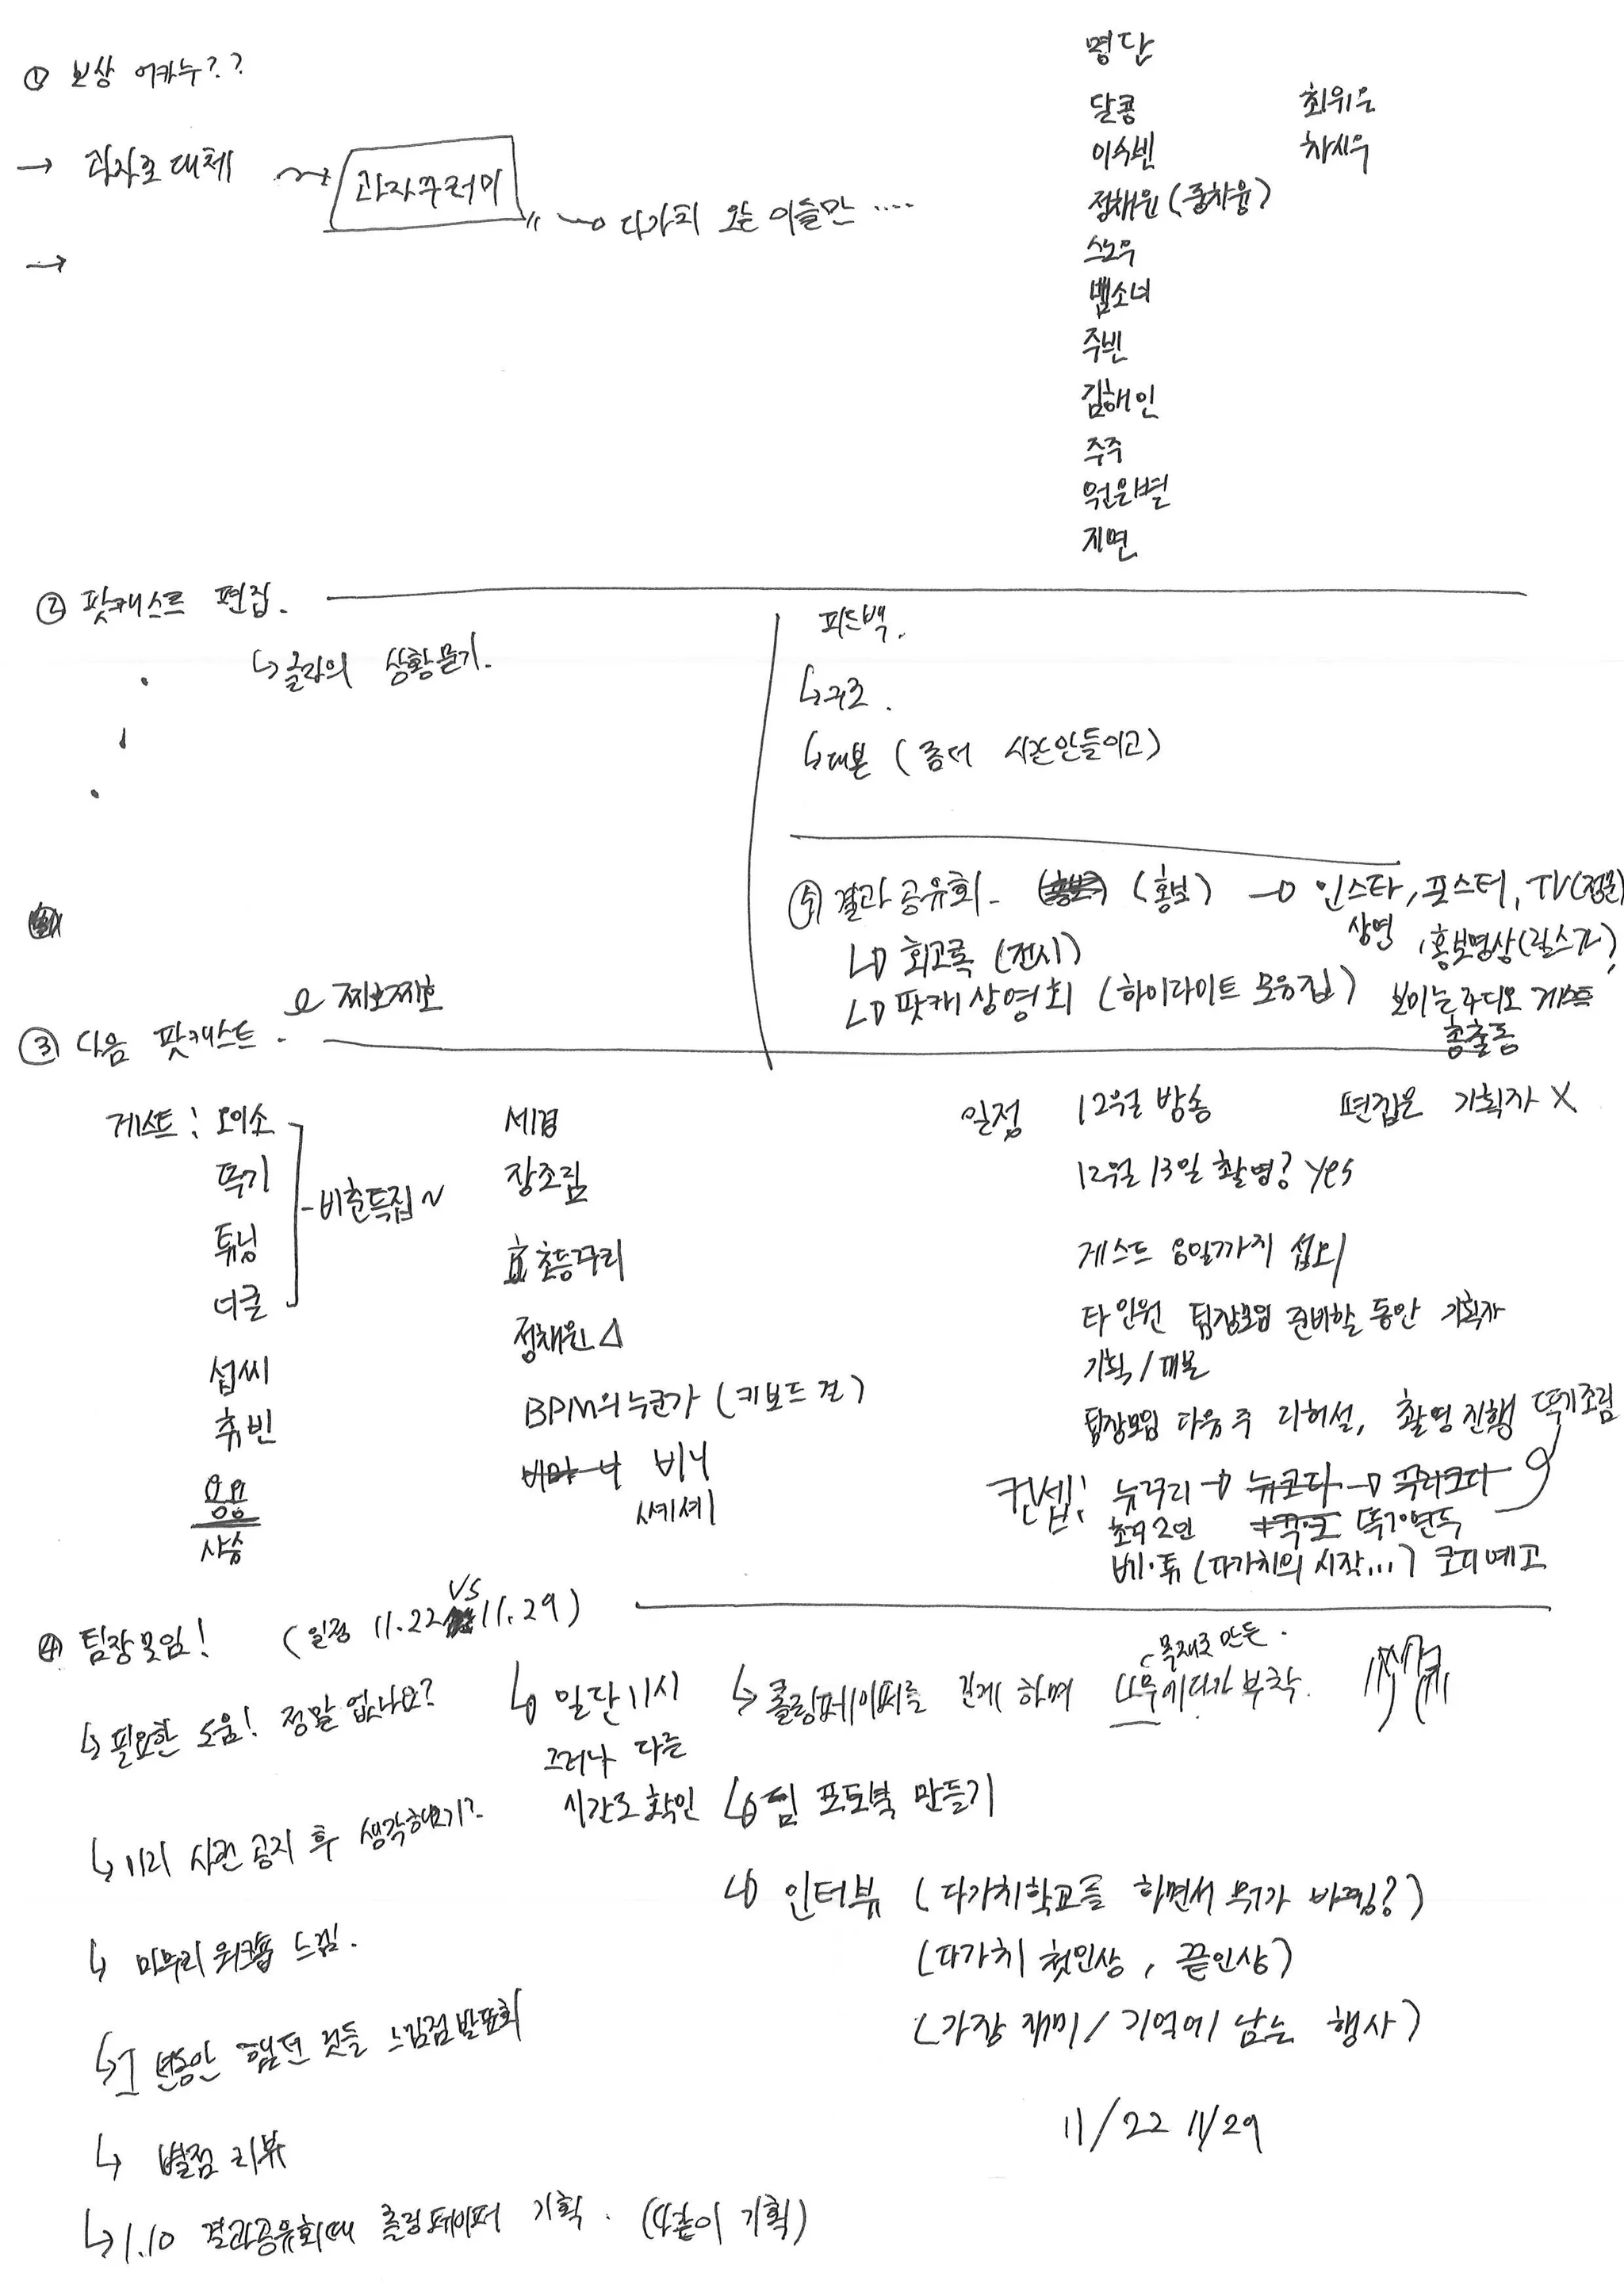 ① 보상 어카누??
→ 과자로 대체 ~→ 과자꾸러미 " ~→ 다가치 오는 이들만 ....
→
명단
달콩
이수빈
정채원 (중차융)
스노우
뱀소녀
주빈
김해인
주주
원은별
지면
최위은
차시우
② 팟캐스트 편집.
↳ 글강의 상황묻기.
피드백.
↳ 구조.
↳ 대본 (좀더 시간안들이고)
⑤ 결과 공유회 - (홍보) → 인스타, 포스터, TV(정문)
상영, 홍보영상(릴스가?)
↳ 회고록 (전시)
↳ 팟캐 상영회 (하이라이트 모음집)
보이는 라디오 게스트
총출동
③ 다음 팟캐스트. 찌호찌호
게스트 : 오이소
뚝기
튜닝
너굴
-비혼특집~
섭씨
츄빈
용용
사슴
세겸
장조림
초등꾸리
정채원 △
BPM의 누군가 (키보드 건)
비니
셰셰
일정 12월 방송 편집은 기획자 X
12월 13일 촬영? yes
게스트 음일까지 섭외
타 인원 팀장모임 준비할 동안 기획자
기획 / 대본
팀장모임 다음 주 리허설, 촬영 진행
뚝기조림
컨셉: 뉴꾸리 → 뉴코다 → 꾸리코다
초기 2인 뚝기·면득
베·튜 (다가치의 시작...) 코디예고
④ 팀장모임! (일정 11.22 vs 11.29)
↳ 필요한 도움! 정말 없나요?
↳ 미리 사전 공지 후 생각해보기?
↳ 마무리 워크숍 느낌.
↳ 1년동안 했던 것들 느낌점 발표회
↳ 별점 리뷰
↳ 1.10 결과공유회때 롤링페이퍼 기획. (다같이 기획)
↳ 일단 11시
그러나 다른
시간도 확인
↳ 롤링페이퍼를 길게 하며 나무에다가 부착.
목재로 만든.
↳ 팀 포토북 만들기
↳ 인터뷰 (다가치학교를 하면서 뭐가 바뀜?)
(다가치 첫인상, 끝인상)
(가장 재미 / 기억에 남는 행사)
11/22 11/29